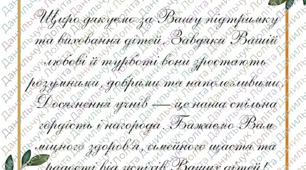 Щиро дякуємо за Вашу підтримку
та виховання дітей. Завдяки Вашій
любові й турботі вони зростають
розумними, добрими та наполегливими.
Досягнення учнів — це наша спільна
гордість і нагорода. Бажаємо Вам
міцного здоров'я, сімейного щастя та
радості від успіхів Ваших дітей!